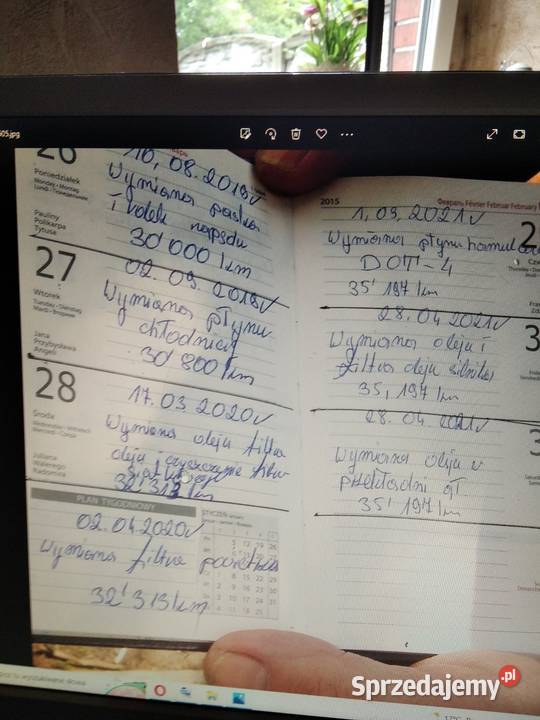 605.jpg
26
Poniedziałek
Monday • Montag
Pauliny
Polikarpa
Tytusa
10,08.2019r
Wymiana paska
i rolek napędu
30'000 km
27
Wtorek
Jana
Przybysława
Angeli
02.09.2019r
Wymiana płynu
chłodnicy
30'800 km
28
Środa
Juliana
Walerego
Radomira
17.03.2020r
Wymiana oleju filtra
oleju i czyszczenie filtra
32'313 km
PLAN TYGODNIOWY
STYCZEŃ
02.04.2020r
Wymiana filtra powietrza
32'313 km
2015
Февраль Février Februar February
1,03,2021r
Wymiana płynu hamulca
DOT-4
35'197 km
28.04.2021r
Wymiana oleju i
filtra oleju silnika
35,197 km
28.04.2021r
Wymiana oleju w
przekładni gł
35'197 km
Sprzedajemy.pl
17°C